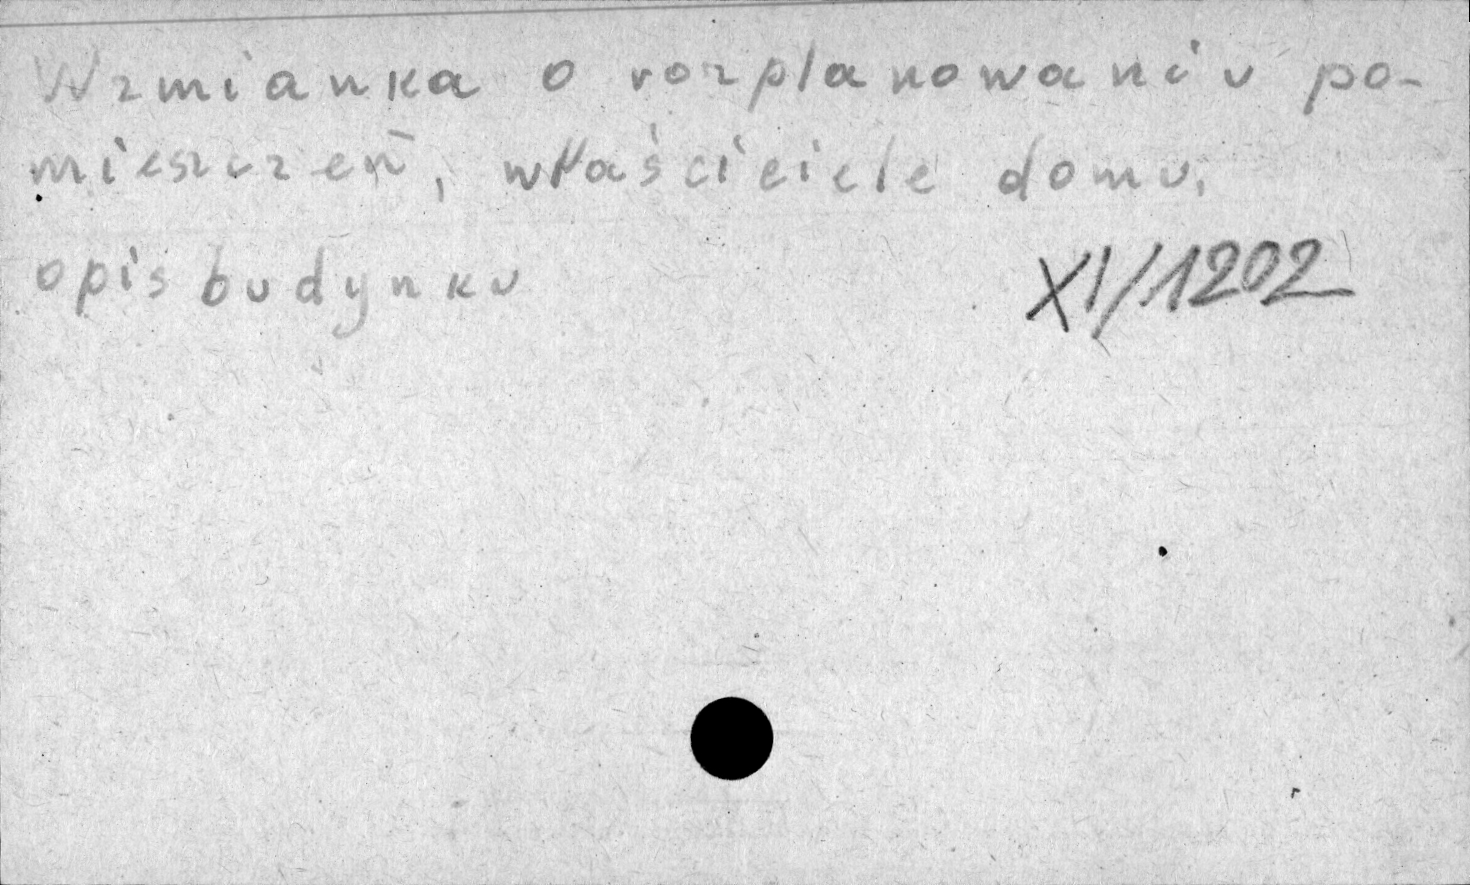 Wzmianka o rozplanowaniu po-
mieszczeń, właściciele domu,
opis budynku XI/1202